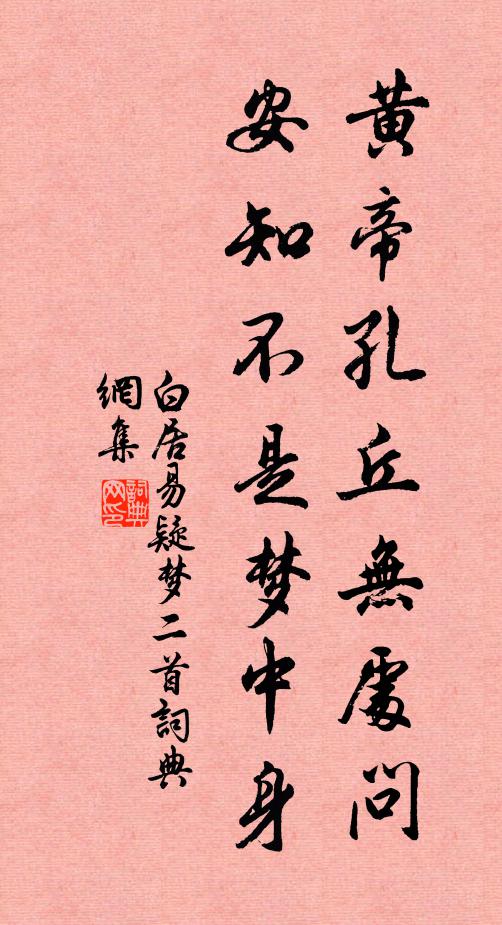 黄帝孔丘無處問
安知不是梦中身
白居易疑梦二首詞典
網集
詞典
网印